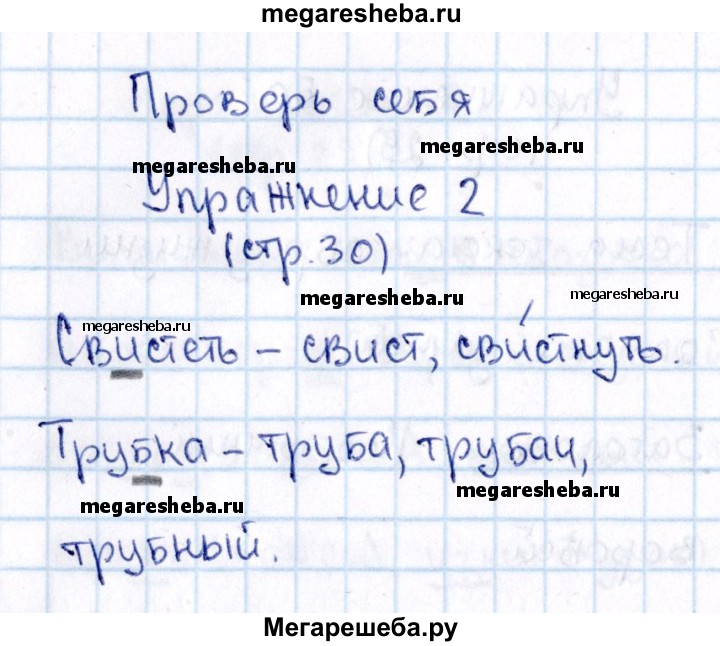 megaresheba.ru
Проверь себя
megaresheba.ru
megaresheba.ru
Упражнение 2
(стр. 30)
megaresheba.ru
megaresheba.ru
megaresheba.ru
Свистеть – свист, сви́стнуть.
Трубка – труба, трубач,
megaresheba.ru
megaresheba.ru
трубный.
Мегарешеба.ру